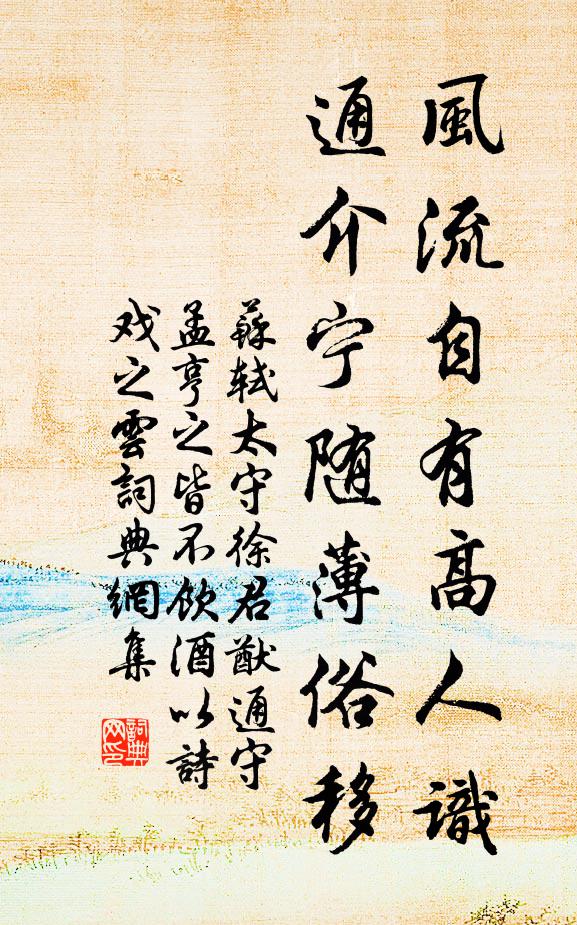 風流自有高人識
通介宁随薄俗移
蘇軾太守徐君猷通守
孟亨之皆不飲酒以詩
戏之雲詞典網集
詞典
网印